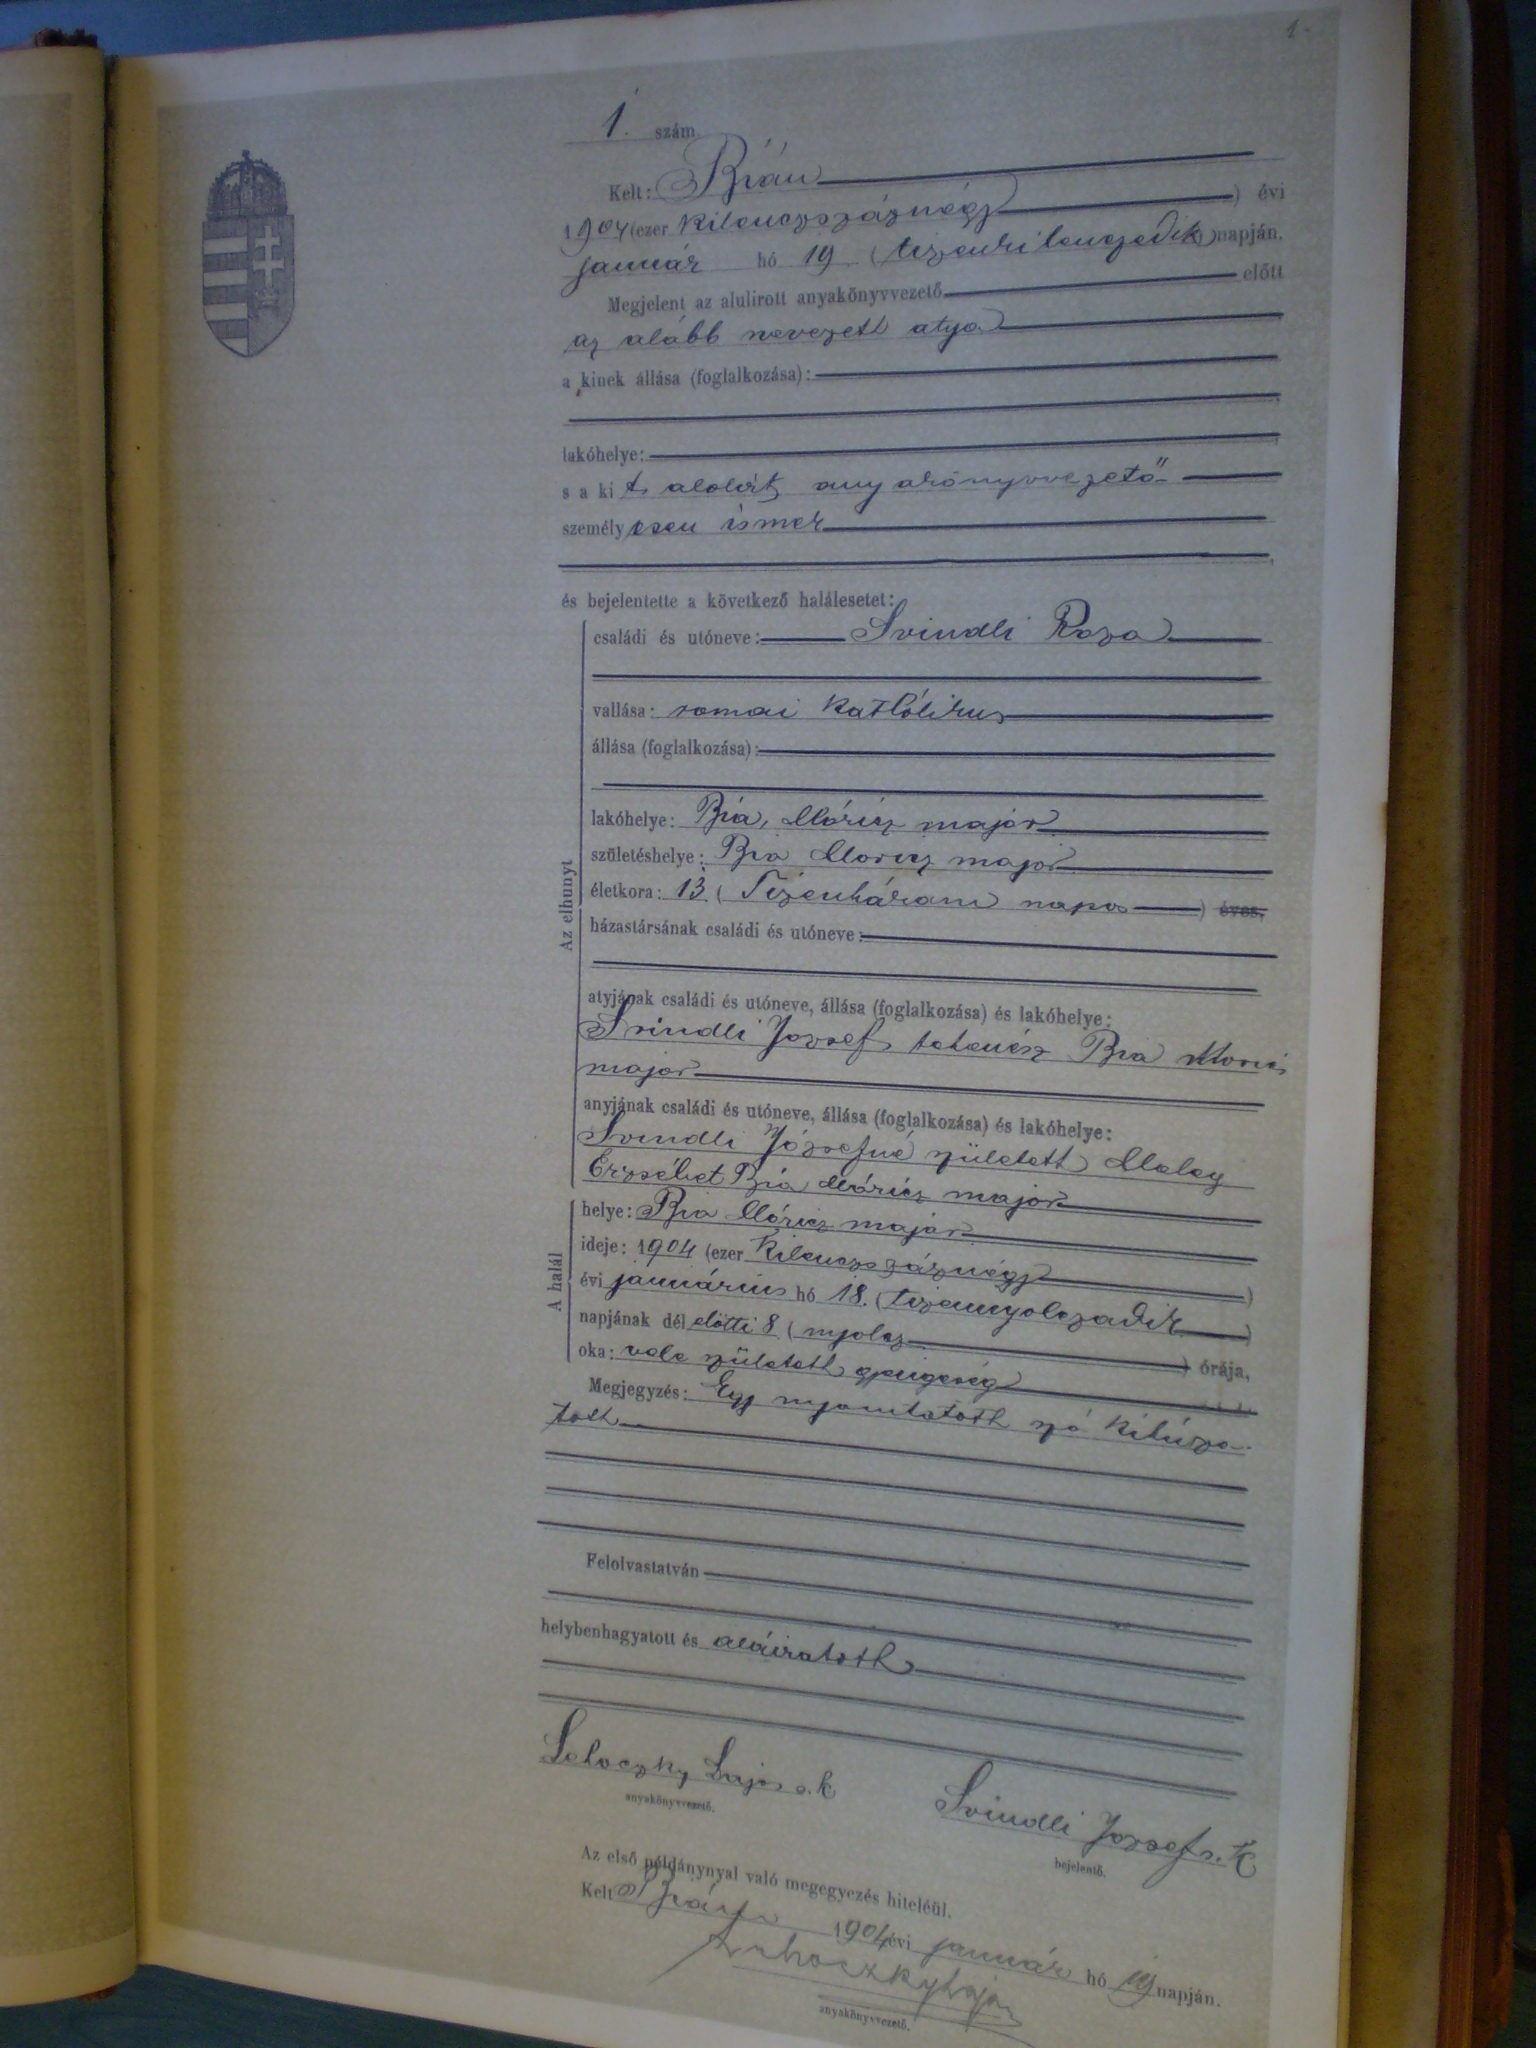 1.
1. szám.
Kelt: Bián
1904 (ezer kilenczszáznégy) évi
január hó 19 (tizenkilenczedik) napján.
Megjelent az alulirott anyakönyvvezető előtt
az alább nevezett atya
a kinek állása (foglalkozása):
lakóhelye:
s a kit alolirt anyakönyvvezető
személyesen ismer
és bejelentette a következő halálesetet:
családi és utóneve: Svindli Roza
vallása: romai katholikus
állása (foglalkozása):
lakóhelye: Bia, Móricz major
születéshelye: Bia Moricz major
életkora: 13 (Tizenhárom napos) éves,
házastársának családi és utóneve:
Az elhunyt
atyjának családi és utóneve, állása (foglalkozása) és lakóhelye:
Svindli Jozsef tehenész Bia Moricz
major
anyjának családi és utóneve, állása (foglalkozása) és lakóhelye:
Svindli Józsefné született
Erzsébet Bia Móricz major
A halál
helye: Bia Móricz major
ideje: 1904 (ezer kilenczszáznégy)
évi januárius hó 18. (tizennyolczadik)
napjának dél előtti 8 (nyolcz) órája,
oka: vele született gyengeség
Megjegyzés: Egy nyomtatott szó kihúza-
tott
Felolvastatván
helybenhagyatott és aláiratott
Lajos s. k
anyakönyvvezető.
Svindli Jozsef s. k
bejelentő.
Az első példánynyal való megegyezés hiteléül.
Kelt Bián 1904 évi január hó 19 napján.
anyakönyvvezető.